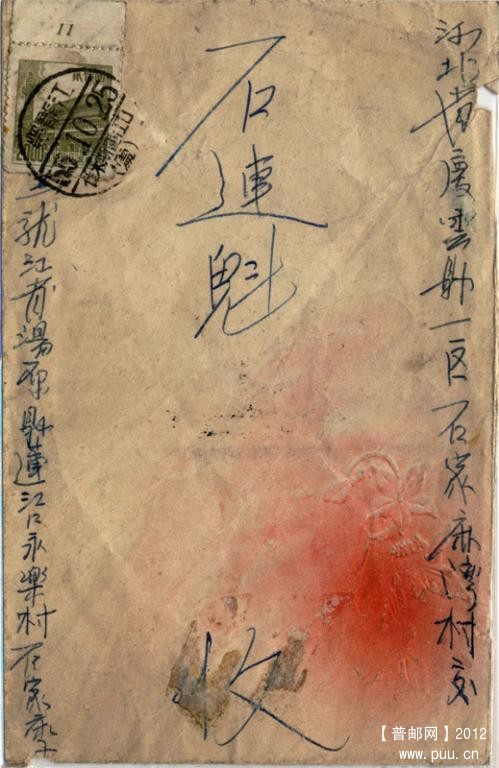 河北省慶雲縣一区石家麻湾村交
石連魁
收
龙江省湯原縣蓮江口永樂村石家
11
黑龍江
10.25
【普邮网】2012
www.puu.cn